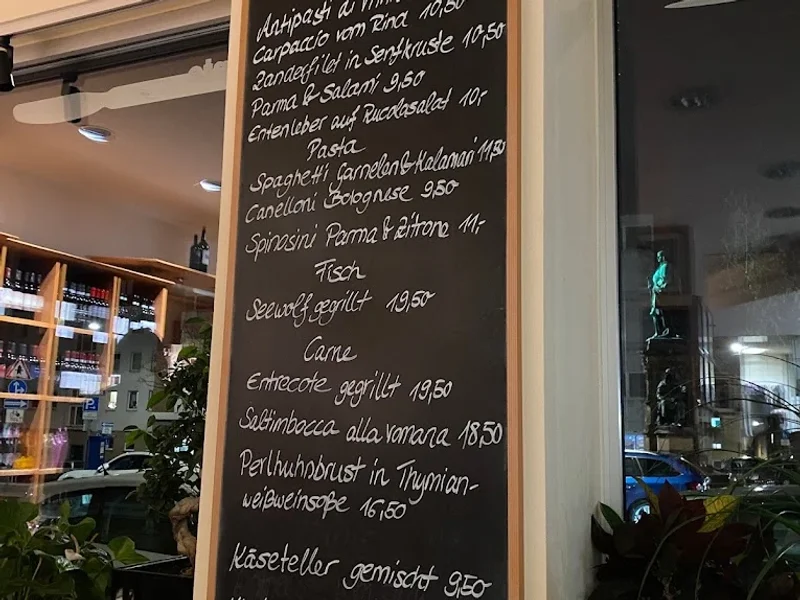 Antipasti
Carpaccio vom Rind 10,50
Zanderfilet in Senfkruste 10,50
Parma & Salami 9,50
Entenleber auf Rucolasalat 10,-
Pasta
Spaghetti Garnelen & Kalamari 11,50
Canelloni Bolognese 9,50
Spinosini Parma & Zitrone 11,-
Fisch
Seewolf gegrillt 19,50
Carne
Entrecote gegrillt 19,50
Saltimbocca alla romana 18,50
Perlhuhnbrust in Thymian-
weißweinsoße 16,50
Käseteller gemischt 9,50